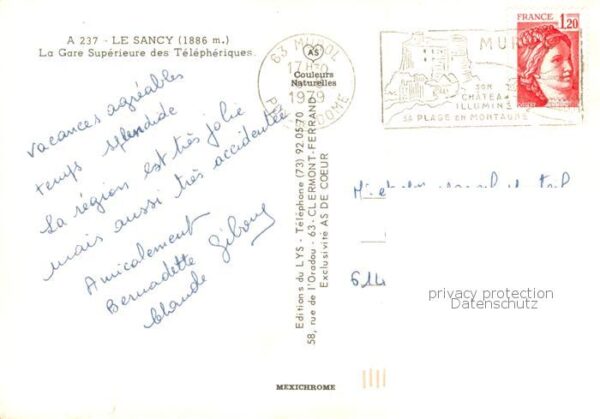 A 237 - LE SANCY (1886 m.)
La Gare Supérieure des Téléphériques
AS
Couleurs
Naturelles
63 MUROL
17H
1979
PUY DE DOME
SON
CHÂTEAU
ILLUMINÉ
SA PLAGE EN MONTAGNE
FRANCE
1,20
vacances agréables
temps splendide
La région est très jolie
mais aussi très accidentée
Amicalement
Bernadette
Claude
Editions du LYS - Téléphone (73) 92.05.70
58, rue de l'Oradou - 63-CLERMONT-FERRAND
Exclusivité AS DE COEUR
privacy protection
Datenschutz
MEXICHROME